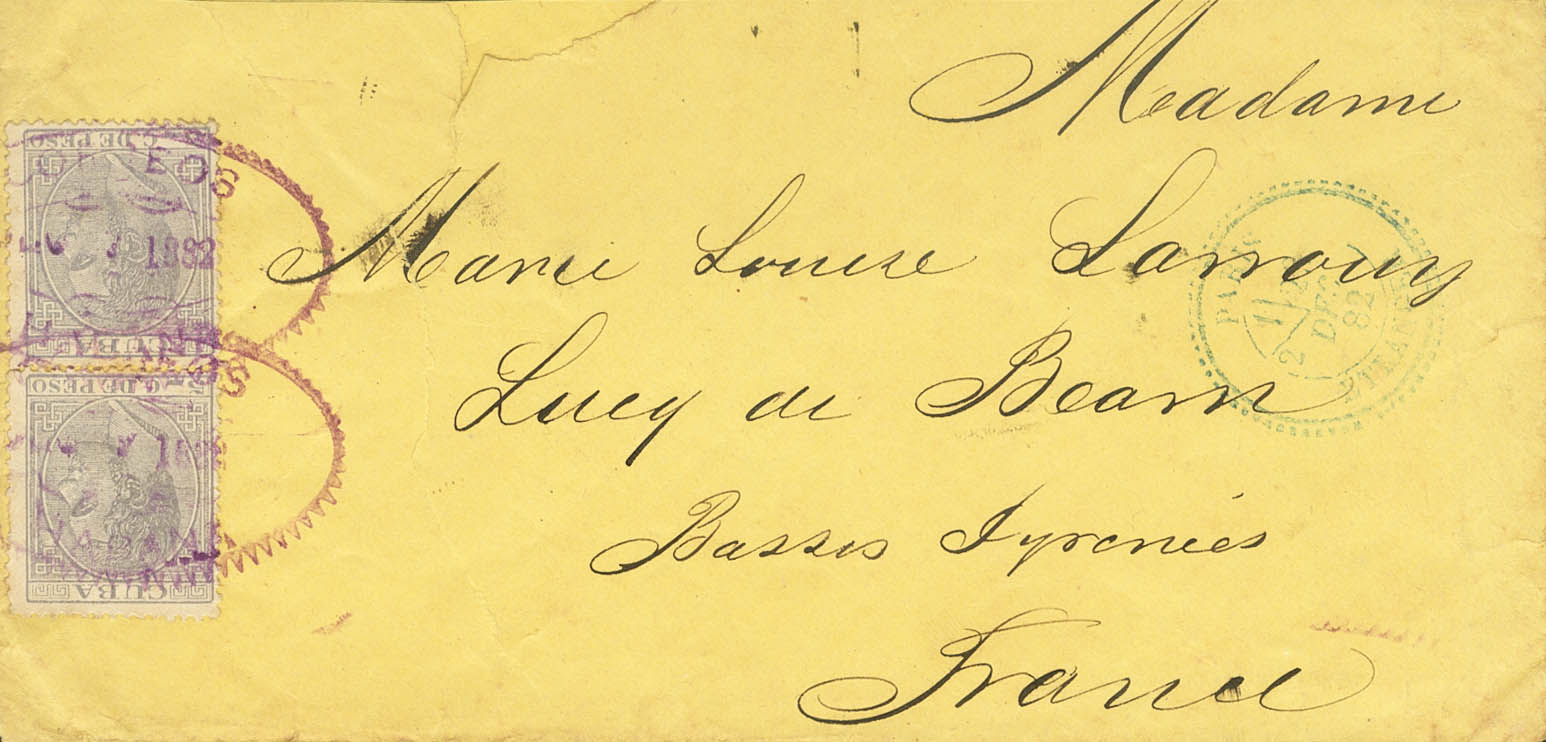 Madame
Marie Louise Larrouy
Lucq de Bearn
Basses Pyrenées
France
C. DE PESO
CUBA
CORREOS
1882
C. DE PESO
CUBA
PARIS
DEC
82
ETRANGER